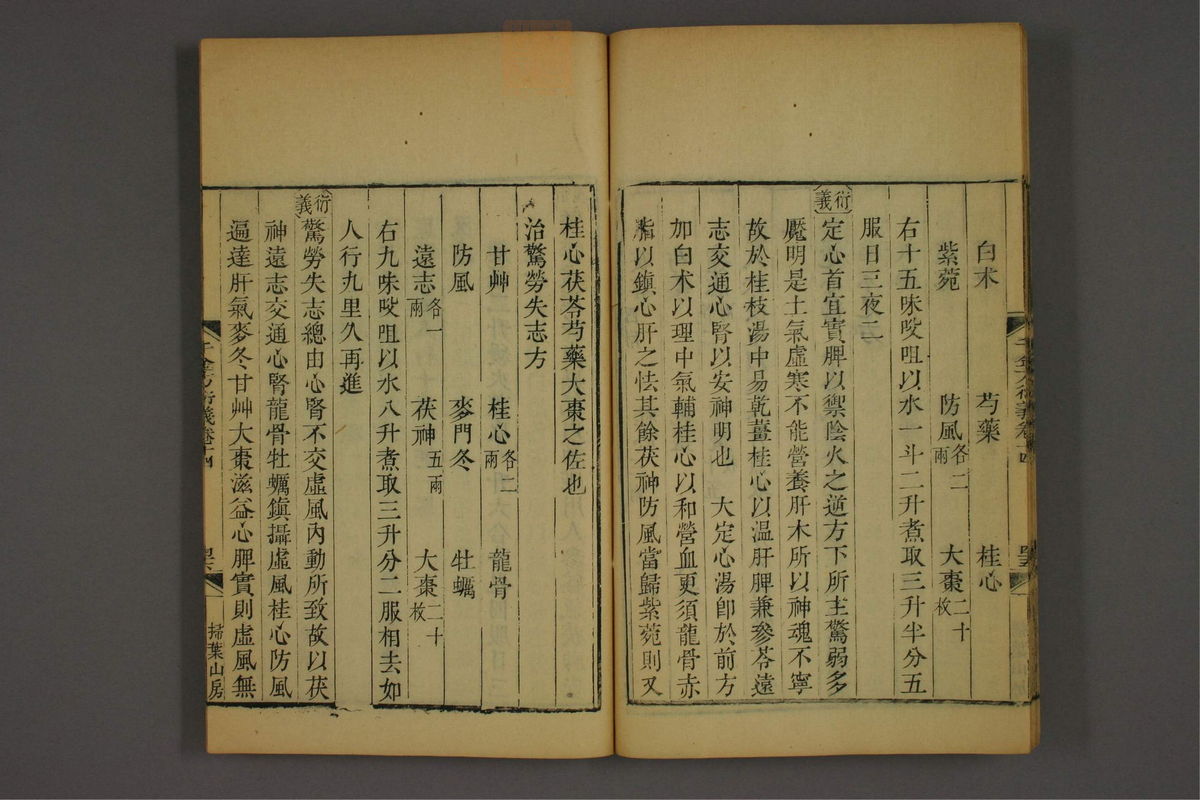 白朮　芍藥　桂心
紫菀　防風各二兩　大棗二十枚
右十五味㕮咀以水一斗二升煮取三升半分五
服日三夜二
衍義
定心首宜實脾以禦陰火之逆方下所主驚弱多
魘明是土氣虛寒不能營養肝木所以神魂不寧
故於桂枝湯中易乾薑桂心以温肝脾兼參苓遠
志交通心腎以安神明也　大定心湯卽於前方
加白朮以理中氣輔桂心以和營血更須龍骨赤
脂以鎮心肝之怯其餘茯神防風當歸紫菀則又
桂心茯苓芍藥大棗之佐也
治驚勞失志方
甘艸　桂心各二兩　龍骨
防風　麥門冬　牡蠣
遠志各一兩　茯神五兩　大棗二十枚
右九味㕮咀以水八升煮取三升分二服相去如
人行九里久再進
衍義
驚勞失志總由心腎不交虛風內動所致故以茯
神遠志交通心腎龍骨牡蠣鎮攝虛風桂心防風
遍達肝氣麥冬甘艸大棗滋益心脾實則虛風無
千金方衍義卷十四
掃葉山房